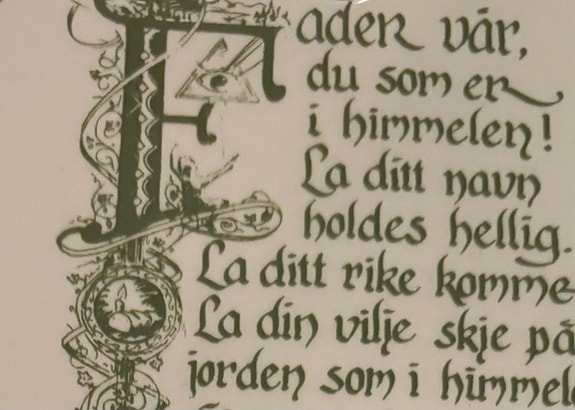 Fader vår,
du som er
i himmelen!
La ditt navn
holdes hellig.
La ditt rike komme
La din vilje skje på
jorden som i himmel